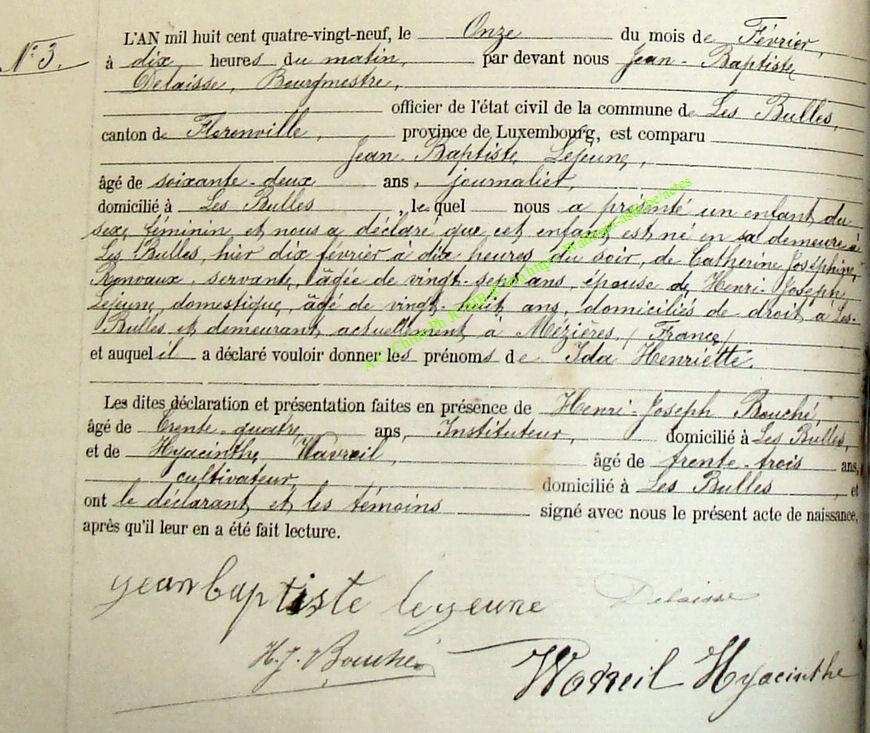 N° 3.
L'AN mil huit cent quatre-vingt-neuf, le Onze du mois de Février,
à dix heures du matin, par devant nous Jean-Baptiste
Delaisse, Bourgmestre,
officier de l'état civil de la commune de Les Bulles,
canton de Florenville, province de Luxembourg, est comparu
Jean-Baptiste Lejeune,
âgé de soixante-deux ans, journalier,
domicilié à Les Bulles, lequel nous a présenté un enfant du
sexe féminin et nous a déclaré que cet enfant est né en sa demeure à
Les Bulles, hier dix février à dix heures du soir, de Catherine Joséphine
servante, âgée de vingt-sept ans, épouse de Henri-Joseph
Lejeune, domestique, âgé de vingt-huit ans, domiciliés de droit à Les-
Bulles et demeurant actuellement à Mézières, (France)
et auquel il a déclaré vouloir donner les prénoms de Ida Henriette.
Les dites déclaration et présentation faites en présence de Henri-Joseph Bouché
âgé de trente-quatre ans, Instituteur, domicilié à Les Bulles,
et de Hyacinthe Wavreil, âgé de trente-trois ans,
cultivateur, domicilié à Les Bulles, et
ont le déclarant et les témoins signé avec nous le présent acte de naissance,
après qu'il leur en a été fait lecture.
jean baptiste lejeune Delaisse
H. J. Bouché
Hyacinthe